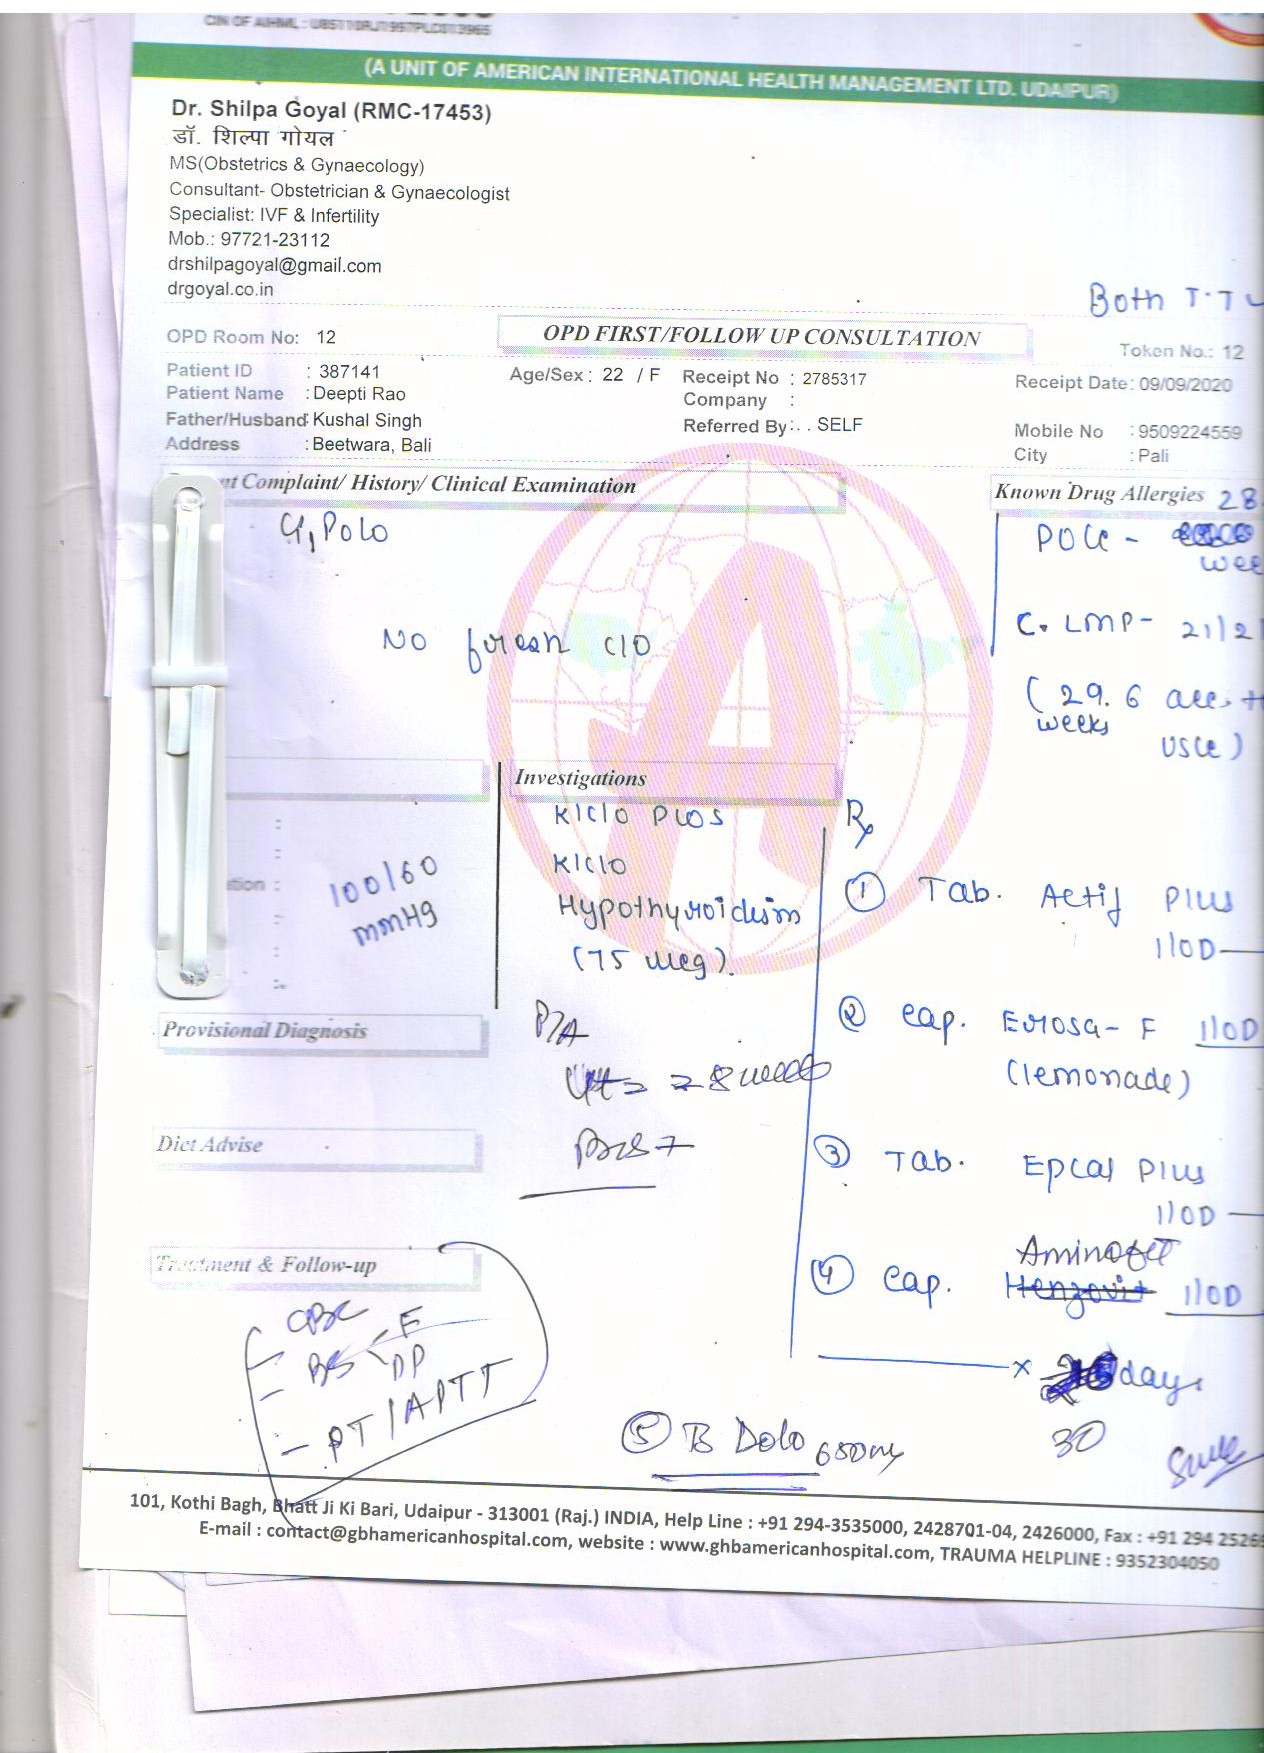 CIN OF AIHML : U85110RJ1997PLC013965
(A UNIT OF AMERICAN INTERNATIONAL HEALTH MANAGEMENT LTD. UDAIPUR)
Dr. Shilpa Goyal (RMC-17453)
डॉ. शिल्पा गोयल
MS(Obstetrics & Gynaecology)
Consultant- Obstetrician & Gynaecologist
Specialist: IVF & Infertility
Mob.: 97721-23112
drshilpagoyal@gmail.com
drgoyal.co.in
Both T.T
OPD Room No: 12
OPD FIRST/FOLLOW UP CONSULTATION
Token No.: 12
Patient ID : 387141
Age/Sex : 22 / F
Receipt No : 2785317
Receipt Date: 09/09/2020
Patient Name : Deepti Rao
Company :
Father/Husband: Kushal Singh
Referred By: . . SELF
Mobile No : 9509224559
Address : Beetwara, Bali
City : Pali
nt Complaint/ History/ Clinical Examination
Known Drug Allergies
28
G1P0L0
POG -
wee
No fresh C/O
C. LMP- 21/2
(29.6 acc.
weeks
USG)
Investigations
K/C/O
K/C/O
Hypothyroidism
(75 mcg).
ation :
100/60
mmHg
Rx
① Tab. Actif Plus
1 OD
② Cap. Evosa-F 1 OD
(lemonade)
Provisional Diagnosis
P/A
28 weeks
Diet Advise
③ Tab. Epcal Plus
1 OD
④ Cap. Aminofit
Henzovit 1 OD
Treatment & Follow-up
- CBC
- BS F
PP
- PT/APTT
x days
30
⑤ Dolo 650mg
101, Kothi Bagh, Bhatt Ji Ki Bari, Udaipur - 313001 (Raj.) INDIA, Help Line : +91 294-3535000, 2428701-04, 2426000, Fax : +91 294 2526
E-mail : contact@gbhamericanhospital.com, website : www.ghbamericanhospital.com, TRAUMA HELPLINE : 9352304050